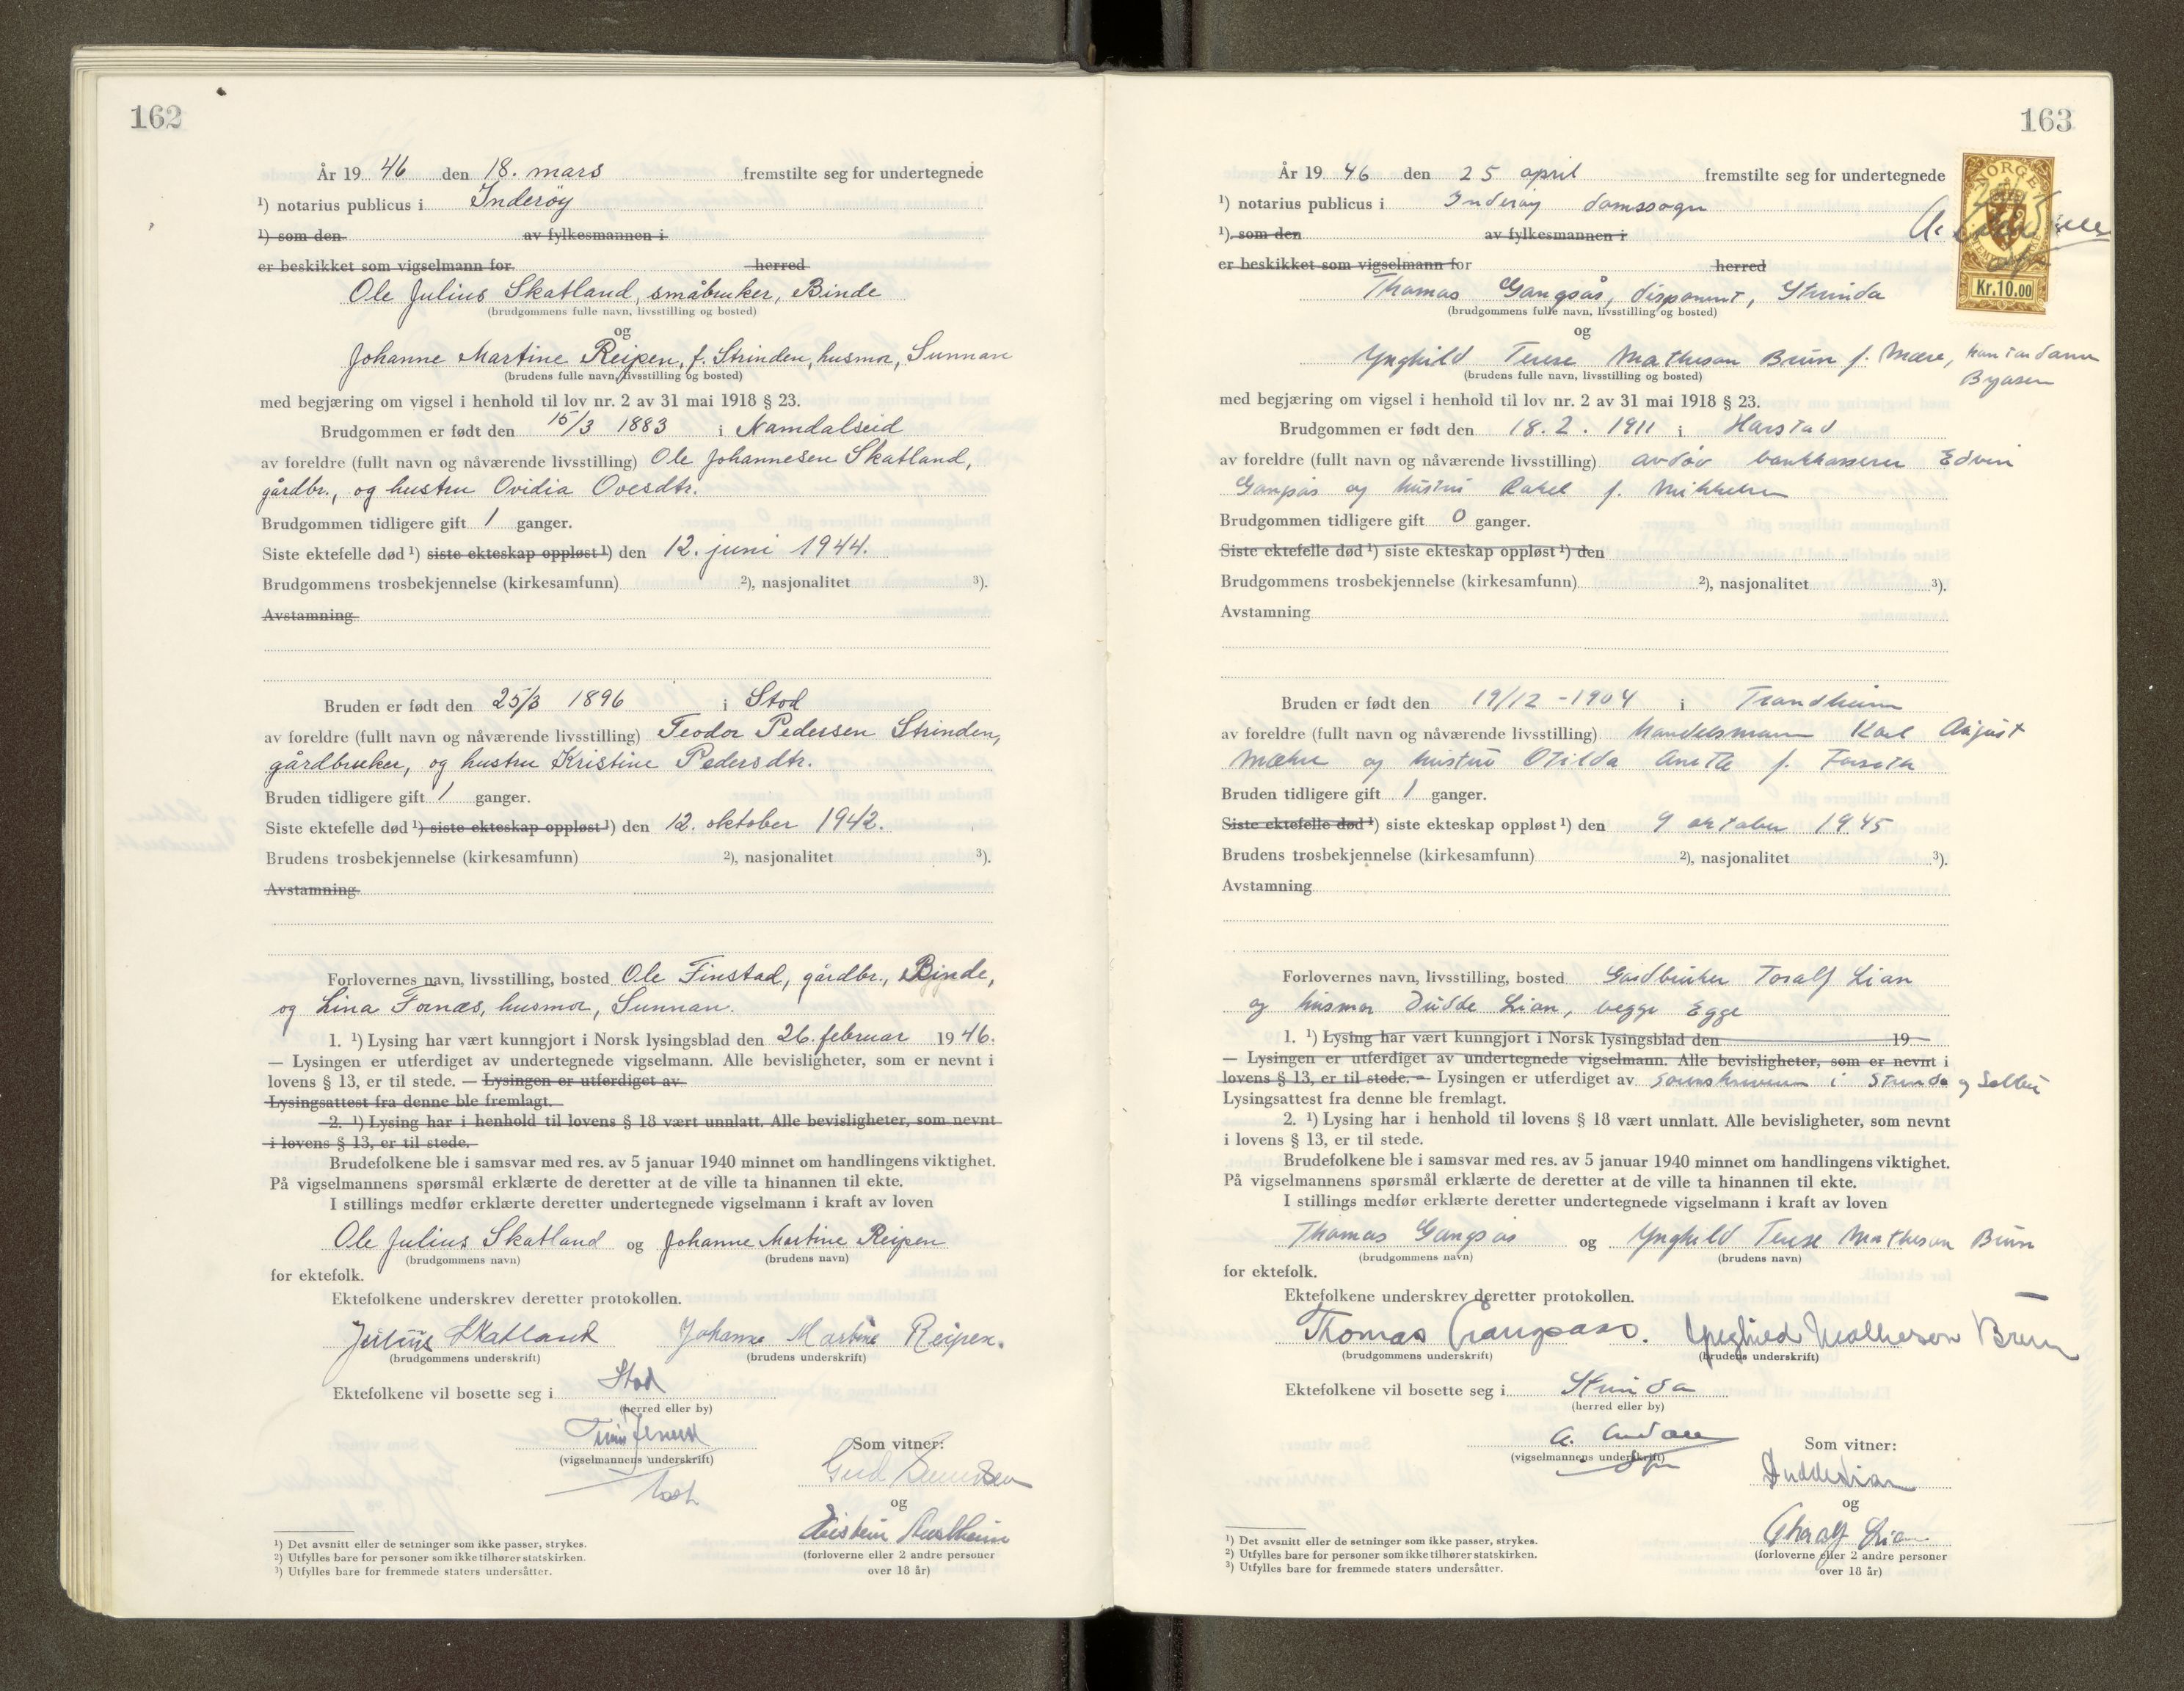 162
År 19 46 den 18. mars fremstilte seg for undertegnede
¹) notarius publicus i Inderöy
¹) som den av fylkesmannen i
er beskikket som vigselmann for herred
Ole Julius Skatland, småbruker, Binde
(brudgommens fulle navn, livsstilling og bosted)
og
Johanne Martine Reipen, f. Strinden, husmor, Sunnan
(brudens fulle navn, livsstilling og bosted)
med begjæring om vigsel i henhold til lov nr. 2 av 31 mai 1918 § 23.
Brudgommen er født den 15/3 1883 i Namdalseid
av foreldre (fullt navn og nåværende livsstilling) Ole Johannesen Skatland,
gårdbr., og hustru Ovidia Ovesdtr.
Brudgommen tidligere gift 1 ganger.
Siste ektefelle død ¹) siste ekteskap oppløst ¹) den 12. juni 1944.
Brudgommens trosbekjennelse (kirkesamfunn) ²), nasjonalitet ³).
Avstamning
Bruden er født den 25/3 1896 i Stod
av foreldre (fullt navn og nåværende livsstilling) Teodor Pedersen Strinden,
gårdbruker, og hustru Kristine Pedersdtr.
Bruden tidligere gift 1 ganger.
Siste ektefelle død ¹) siste ekteskap oppløst ¹) den 12. oktober 1942.
Brudens trosbekjennelse (kirkesamfunn) ²), nasjonalitet ³).
Avstamning
Forlovernes navn, livsstilling, bosted Ole Finstad, gårdbr., Binde,
og Lina Fornæs, husmor, Sunnan.
1. ¹) Lysing har vært kunngjort i Norsk lysingsblad den 26. februar 19 46.
— Lysingen er utferdiget av undertegnede vigselmann. Alle bevisligheter, som er nevnt i
lovens § 13, er til stede. — Lysingen er utferdiget av
Lysingsattest fra denne ble fremlagt.
2. ¹) Lysing har i henhold til lovens § 18 vært unnlatt. Alle bevisligheter, som nevnt
i lovens § 13, er til stede.
Brudefolkene ble i samsvar med res. av 5 januar 1940 minnet om handlingens viktighet.
På vigselmannens spørsmål erklærte de deretter at de ville ta hinannen til ekte.
I stillings medfør erklærte deretter undertegnede vigselmann i kraft av loven
Ole Julius Skatland og Johanne Martine Reipen
(brudgommens navn) (brudens navn)
for ektefolk.
Ektefolkene underskrev deretter protokollen.
Julius Skatland Johanne Martine Reipen.
(brudgommens underskrift) (brudens underskrift)
Ektefolkene vil bosette seg i Stod
(herred eller by)
(vigselmannens underskrift)
Som vitner:
og
(forloverne eller 2 andre personer
over 18 år)
¹) Det avsnitt eller de setninger som ikke passer, strykes.
²) Utfylles bare for personer som ikke tilhører statskirken.
³) Utfylles bare for fremmede staters undersåtter.
163
NORGE
Kr.10.00
År 19 46 den 25 april fremstilte seg for undertegnede
¹) notarius publicus i Inderøy domssogn
¹) som den av fylkesmannen i
er beskikket som vigselmann for herred
Thomas Gangsås, disponent, Strinda
(brudgommens fulle navn, livsstilling og bosted)
og
Ynghild Terese Matheson Brun f. Mære, kontordame
Byåsen
(brudens fulle navn, livsstilling og bosted)
med begjæring om vigsel i henhold til lov nr. 2 av 31 mai 1918 § 23.
Brudgommen er født den 18. 2. 1911 i Harstad
av foreldre (fullt navn og nåværende livsstilling) avdøv bankkasserer Edvin
Gangsås og hustru Rakel f. Mikkelsen
Brudgommen tidligere gift 0 ganger.
Siste ektefelle død ¹) siste ekteskap oppløst ¹) den
Brudgommens trosbekjennelse (kirkesamfunn) ²), nasjonalitet ³).
Avstamning
Bruden er født den 19/12 - 1904 i Trondheim
av foreldre (fullt navn og nåværende livsstilling) handelsmann Karl August
Mæhre og hustru Otilda Anetta f. Forseth
Bruden tidligere gift 1 ganger.
Siste ektefelle død ¹) siste ekteskap oppløst ¹) den 9 oktober 1945
Brudens trosbekjennelse (kirkesamfunn) ²), nasjonalitet ³).
Avstamning
Forlovernes navn, livsstilling, bosted Gårdbruker Toralf Lian
og husmor Dudde Lian, begge Egge
1. ¹) Lysing har vært kunngjort i Norsk lysingsblad den 19
— Lysingen er utferdiget av undertegnede vigselmann. Alle bevisligheter, som er nevnt i
lovens § 13, er til stede. — Lysingen er utferdiget av sorenskriveren i Strinda og Selbu
Lysingsattest fra denne ble fremlagt.
2. ¹) Lysing har i henhold til lovens § 18 vært unnlatt. Alle bevisligheter, som nevnt
i lovens § 13, er til stede.
Brudefolkene ble i samsvar med res. av 5 januar 1940 minnet om handlingens viktighet.
På vigselmannens spørsmål erklærte de deretter at de ville ta hinannen til ekte.
I stillings medfør erklærte deretter undertegnede vigselmann i kraft av loven
Thomas Gangsås og Ynghild Terese Matheson Brun
(brudgommens navn) (brudens navn)
for ektefolk.
Ektefolkene underskrev deretter protokollen.
Thomas Gangsaas. Ynghild Matheson Brun
(brudgommens underskrift) (brudens underskrift)
Ektefolkene vil bosette seg i Strinda
(herred eller by)
(vigselmannens underskrift)
Som vitner:
Dudde Lian
og
Thoralf Lian
(forloverne eller 2 andre personer
over 18 år)
¹) Det avsnitt eller de setninger som ikke passer, strykes.
²) Utfylles bare for personer som ikke tilhører statskirken.
³) Utfylles bare for fremmede staters undersåtter.